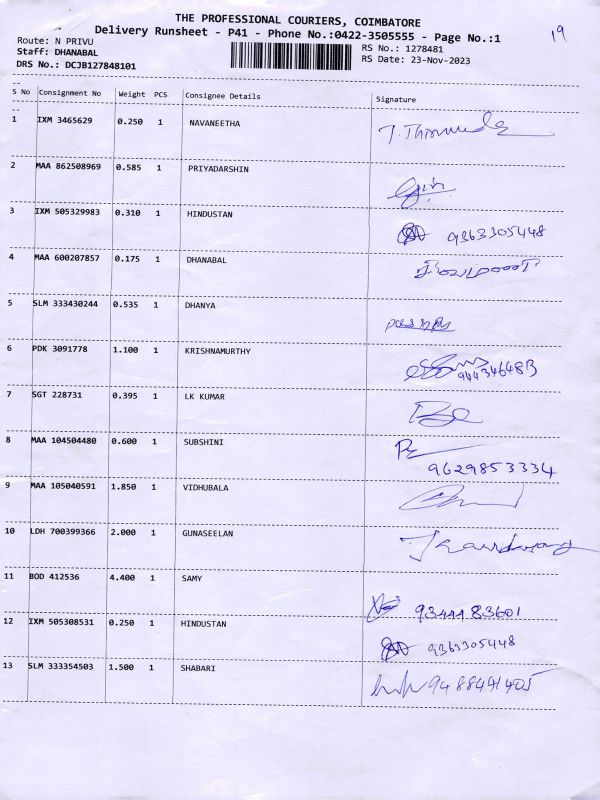 THE PROFESSIONAL COURIERS, COIMBATORE
Delivery Runsheet - P41 - Phone No.:0422-3505555 - Page No.:1
19
Route: N PRIVU
RS No.: 1278481
Staff: DHANABAL
RS Date: 23-Nov-2023
DRS No.: DCJB127848101
S No Consignment No Weight PCS Consignee Details Signature
1 IXM 3465629 0.250 1 NAVANEETHA
2 MAA 862508969 0.585 1 PRIYADARSHIN
3 IXM 505329983 0.310 1 HINDUSTAN 9363305448
4 MAA 600207857 0.175 1 DHANABAL
5 SLM 333430244 0.535 1 DHANYA
6 PDK 3091778 1.100 1 KRISHNAMURTHY
7 SGT 228731 0.395 1 LK KUMAR
8 MAA 104504480 0.600 1 SUBSHINI 9629853334
9 MAA 105040591 1.850 1 VIDHUBALA
10 LDH 700399366 2.000 1 GUNASEELAN
11 BOD 412536 4.400 1 SAMY 9344483601
12 IXM 505308531 0.250 1 HINDUSTAN 9363305448
13 SLM 333354503 1.500 1 SHABARI 9488491405